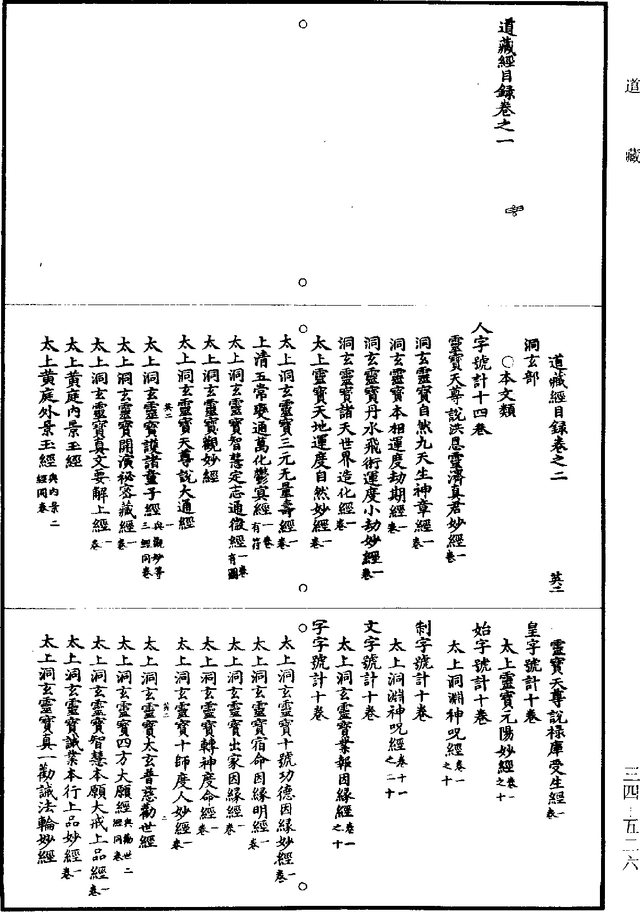 道藏
道藏經目録卷之一
道藏經目録卷之二 英二
洞玄部
○本文類
人字號計十四卷
靈寶天尊說洪恩靈濟真君妙經一卷
洞玄靈寶自然九天生神章經一卷
洞玄靈寶本相運度劫期經一卷
洞玄靈寶丹水飛術運度小劫妙經一卷
洞玄靈寶諸天世界造化經一卷
太上靈寶天地運度自然妙經一卷
太上洞玄靈寶三元无量壽經一卷
上清五常變通萬化鬱冥經一卷有符
太上洞玄靈寶智慧定志通微經一卷有圖
太上洞玄靈寶觀妙經
太上洞玄靈寶天尊說大通經
英二
太上洞玄靈寶護諸童子經一與觀妙等三經同卷
太上洞玄靈寶開演秘密藏經一卷
太上洞玄靈寶真文要解上經一卷
太上黃庭內景玉經
太上黃庭外景玉經與內景二經同卷
靈寶天尊說祿庫受生經一卷
皇字號計十卷
太上靈寶元陽妙經卷一之十
始字號計十卷
太上洞淵神呪經卷一之十
制字號計十卷
太上洞淵神呪經卷十一之二十
文字號計十卷
太上洞玄靈寶業報因緣經卷一之十
字字號計十卷
太上洞玄靈寶十號功德因緣妙經一卷
太上洞玄靈寶宿命因緣明經一卷
太上洞玄靈寶出家因緣經一卷
太上洞玄靈寶轉神度命經一卷
太上洞玄靈寶十師度人妙經一卷
英二 二
太上洞玄靈寶太玄普慈勸世經
太上洞玄靈寶四方大願經與勸世二經同卷
太上洞玄靈寶智慧本願大戒上品經一卷
太上洞玄靈寶誡業本行上品妙經一卷
太上洞玄靈寶真一勸誡法輪妙經
三四－五二六